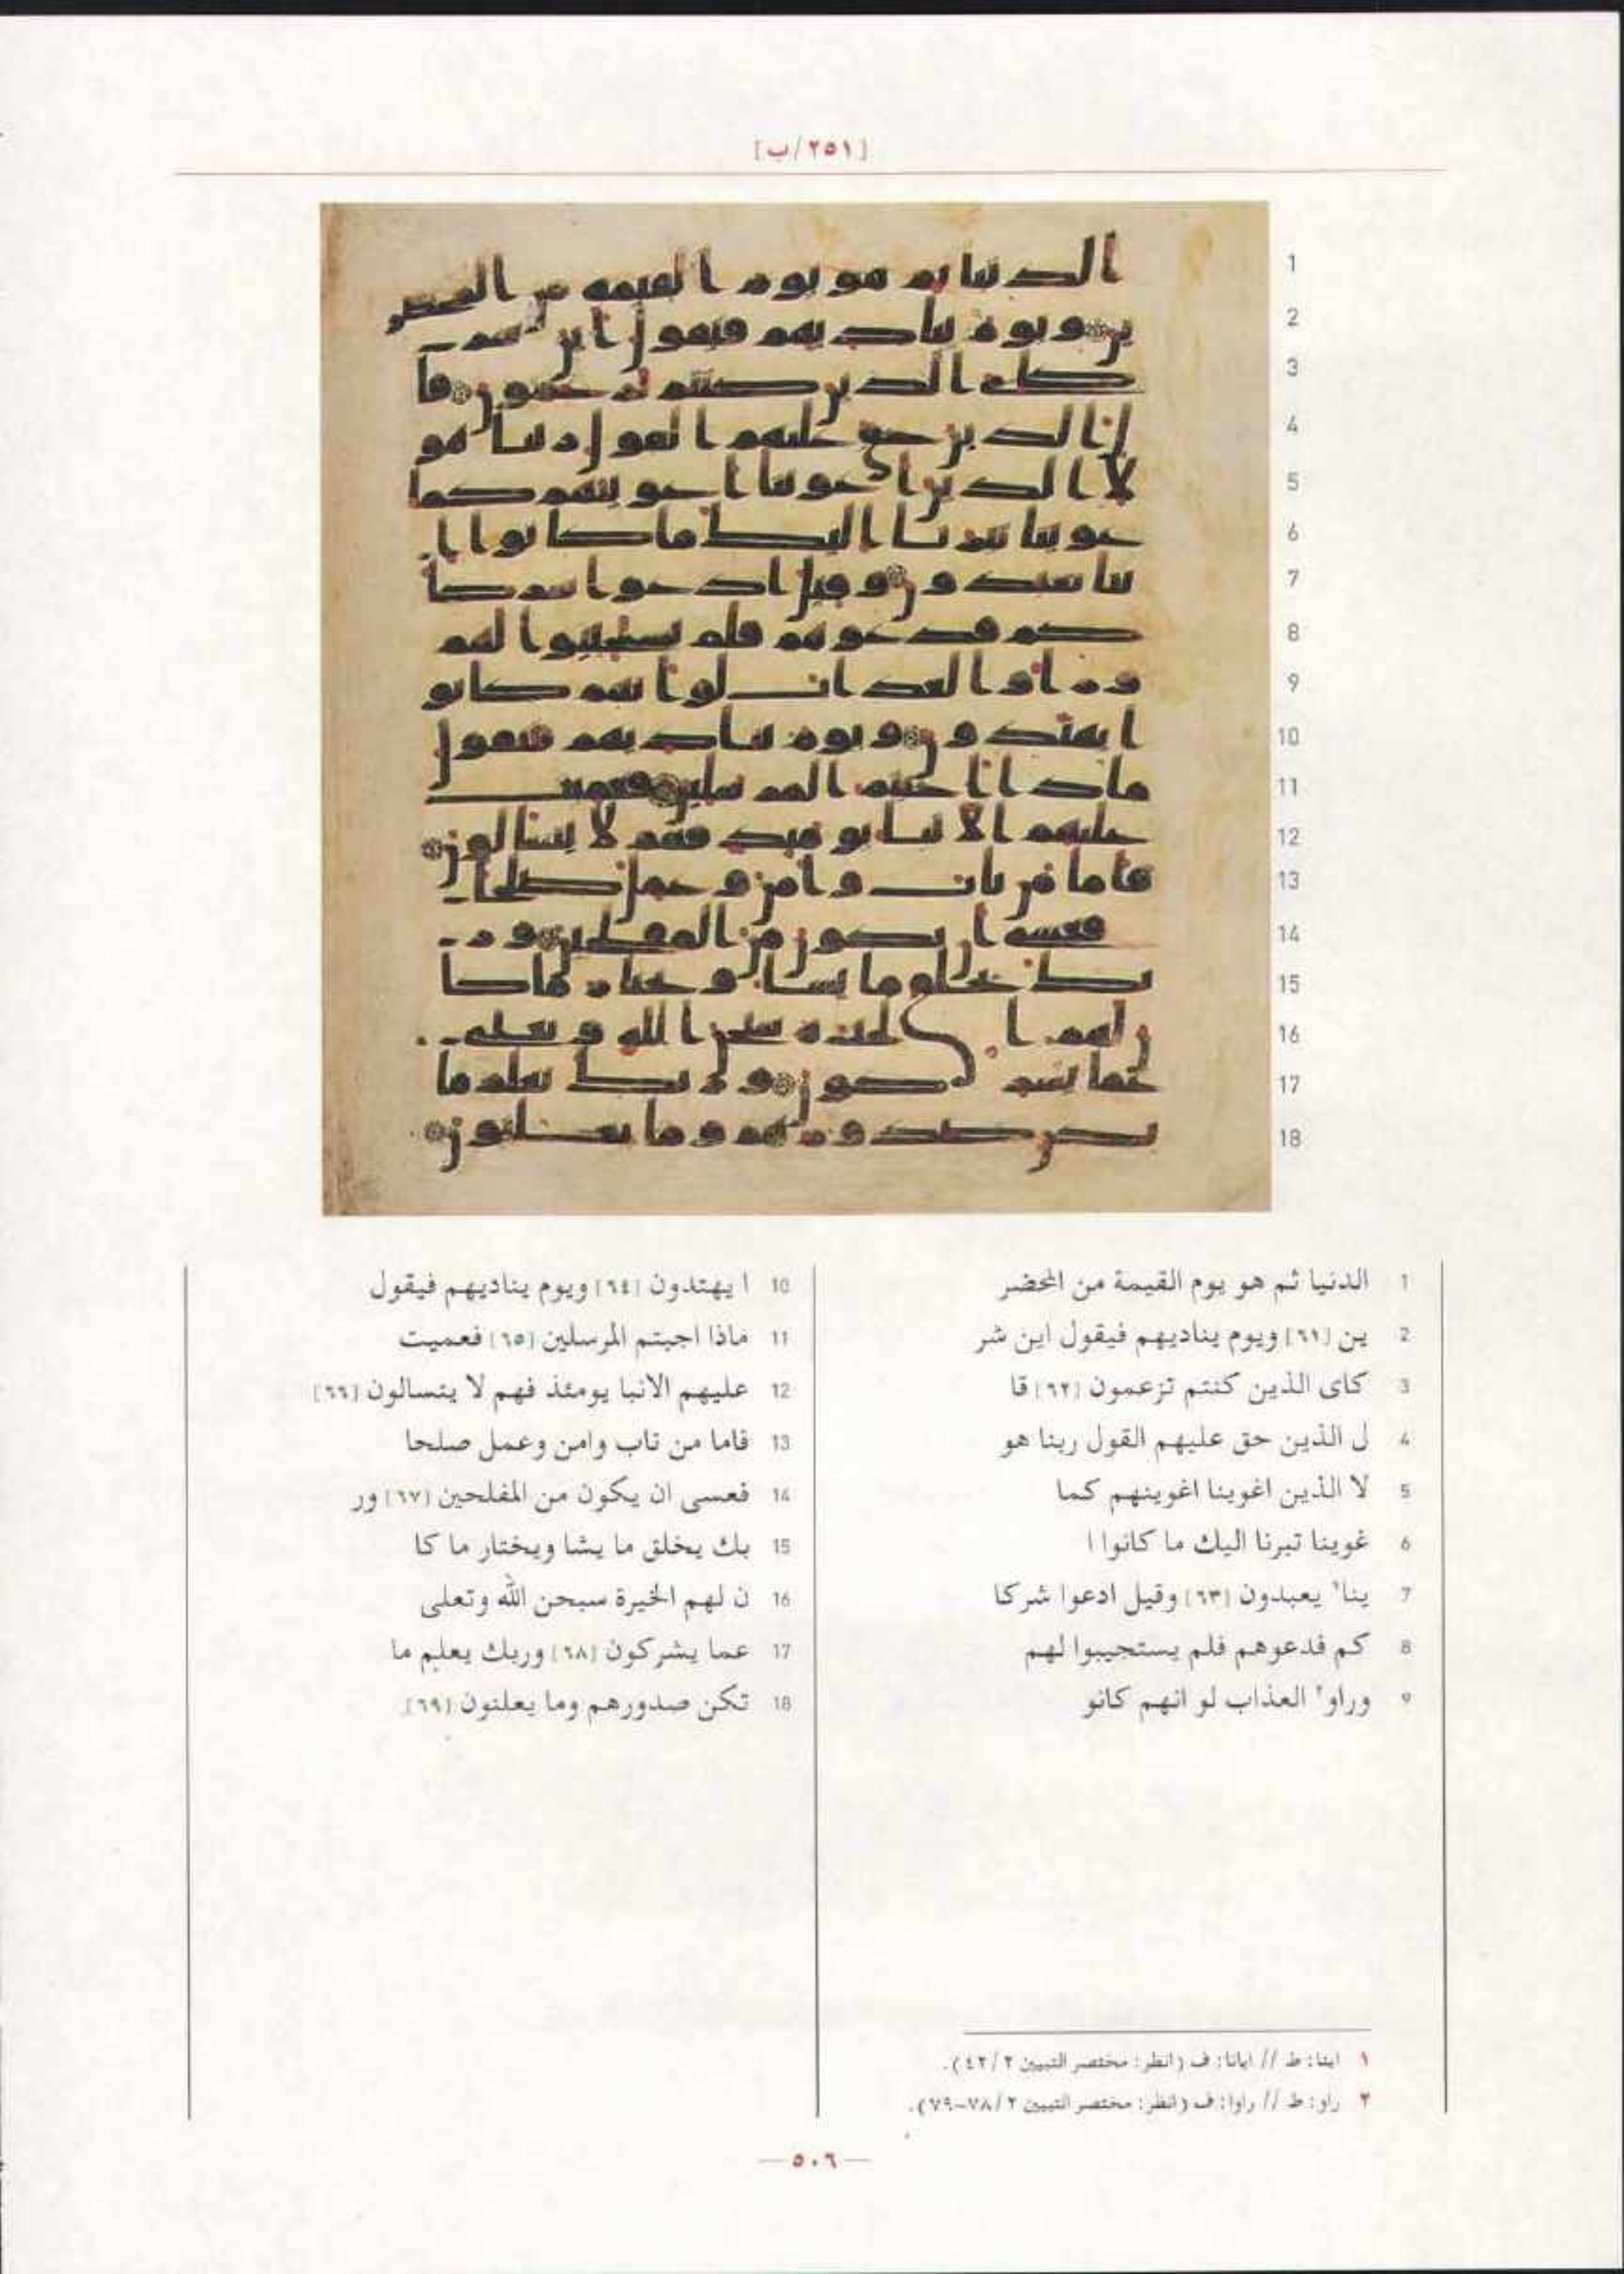 [٢٥١/ب]
1 الدنيا ثم هو يوم القيمة من المحضر
2 ين [٦١] ويوم يناديهم فيقول اين شر
3 كاى الذين كنتم تزعمون [٦٢] قا
4 ل الذين حق عليهم القول ربنا هو
5 لا الذين اغوينا اغوينهم كما
6 غوينا تبرنا اليك ما كانوا ا
7 ينا١ يعبدون [٦٣] وقيل ادعوا شركا
8 كم فدعوهم فلم يستجيبوا لهم
9 وراو٢ العذاب لو انهم كانو
10 ا يهتدون [٦٤] ويوم يناديهم فيقول
11 ماذا اجبتم المرسلين [٦٥] فعميت
12 عليهم الانبا يومئذ فهم لا يتسالون [٦٦]
13 فاما من تاب وامن وعمل صلحا
14 فعسى ان يكون من المفلحين [٦٧] ور
15 بك يخلق ما يشا ويختار ما كا
16 ن لهم الخيرة سبحن الله وتعلى
17 عما يشركون [٦٨] وربك يعلم ما
18 تكن صدورهم وما يعلنون [٦٩]
١ اينا: ط // ايانا: ف (انظر: مختصر التبيين ٤٢/٢).
٢ راو: ط // راوا: ف (انظر: مختصر التبيين ٧٨/٢-٧٩).
— ٥٠٦ —